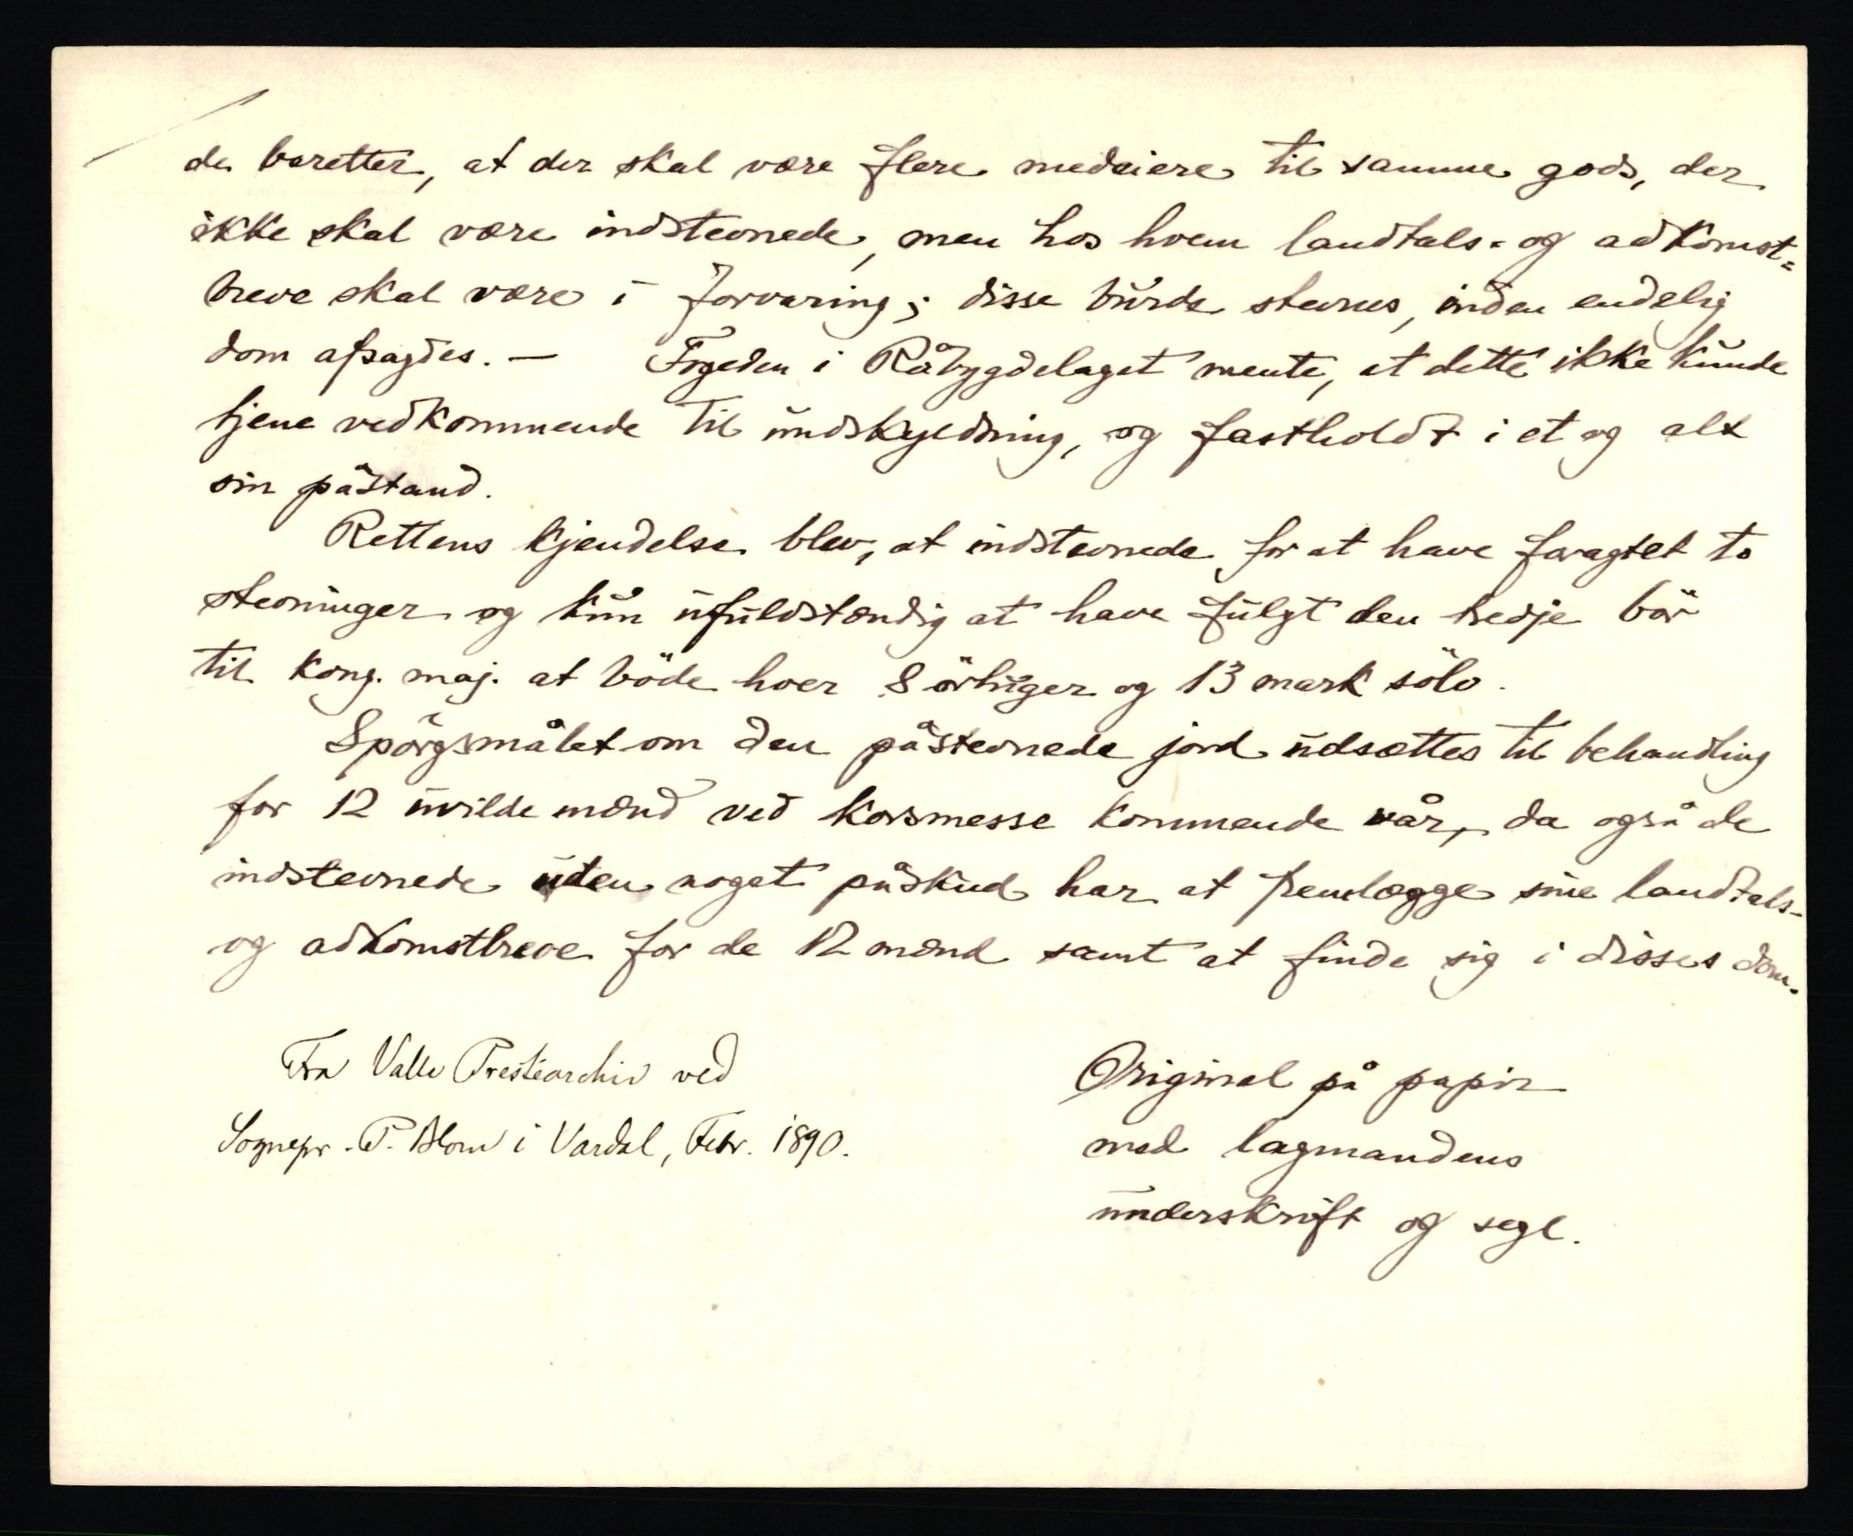 de baretter, at der skal være flere medeiere til samme gods, der
ikke skal være indstevnede, men hos hvem landtals- og adkomst=
breve skal være i forvaring; disse burde stevnes, inden endelig
dom afsagdes. — Fogeden i Råbygdelaget mente, at dette ikke kunde
tjene vedkommende til undskyldning, og fastholdt i et og alt
sin påstand.
Rettens kjendelse blev, at indstevnede for at have foragtet to
stevninger og kun ufuldstændig at have fulgt den tredje bör
til kong. maj. at böde hver 8 örtuger og 13 mark sölv.
Spörgsmålet om den påstevnede jord udsættes til behandling
for 12 uvilde mænd ved korsmesse kommende vår, da også de
indstevnede uten noget påskud har at fremlægge sine landtals-
og adkomstbreve for de 12 mænd samt at finde sig i disses dom.
Fra Valle Prestearchiv ved
Sognepr. P. Blom i Vardal, Febr. 1890.
Original på papir
med lagmandens
underskrift og segl.